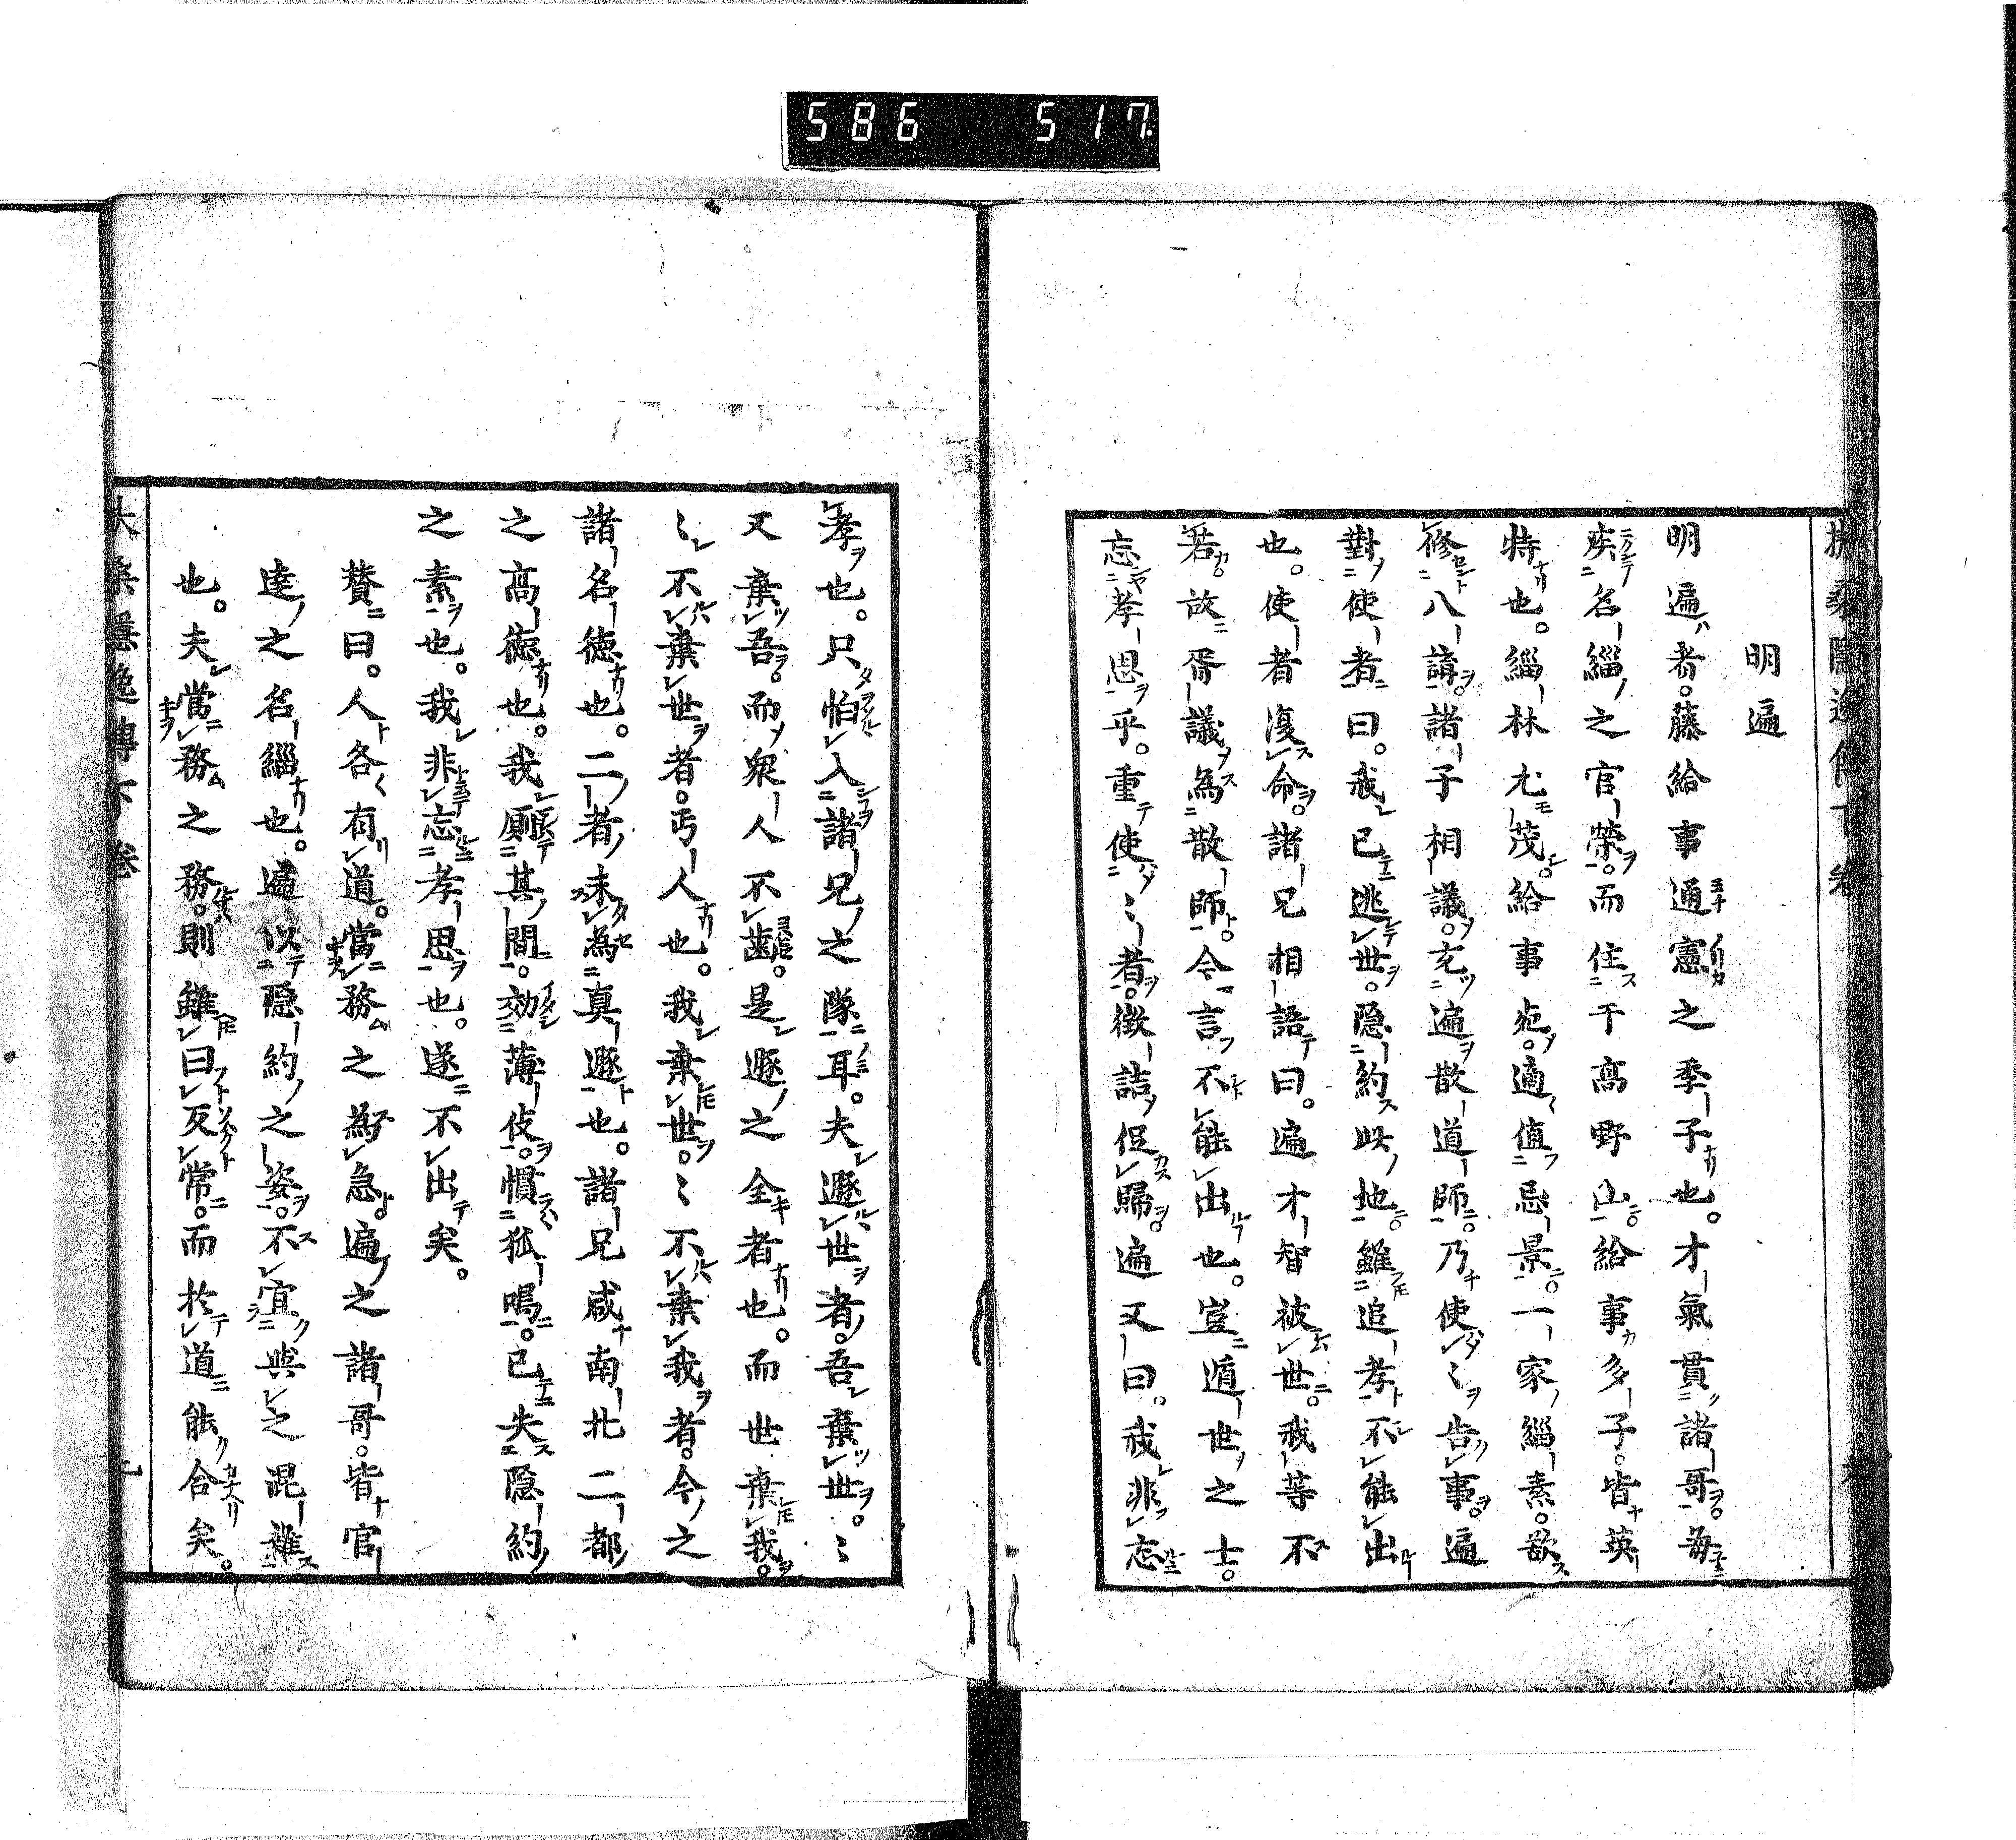 586 517
明遍
明遍者。藤給事通憲之季子也。才氣貫諸哥。毎
疾名緇之官榮。而住于高野山。給事多子。皆英
特也。緇林尤茂。給事死。適値忌景。一家緇素。欲
修八講。諸子相議。充遍散道師。乃使〻告事。遍
對使者曰。我已逃世。隠約此地。雖追孝不能出
也。使者復命。諸兄相語曰。遍才智被世。我等不
若。故胥議為散師。今言不能出也。豈遁世之士。
忘孝思乎。重使〻者。徴詰促歸。遍又曰。我非忘
孝也。只怕入諸兄之隊耳。夫遯世者。吾棄世。〻
又棄吾。而衆人不齒。是遯之全者也。而世棄我。
〻不棄世者。丐人也。我棄世。〻不棄我者。今之
諸名徳也。二者未為真遯也。諸兄咸南北二都
之高徳也。我厠其間。効薄伎。慣狐鳴。已失隠約
之素也。我非忘孝思也。遂不出矣。
賛曰。人各有道。當務之為急。遍之諸哥。皆官
達之名緇也。遍以隠約之姿。不宜與之混雜
也。夫當務之務。則雖曰反常。而於道能合矣。